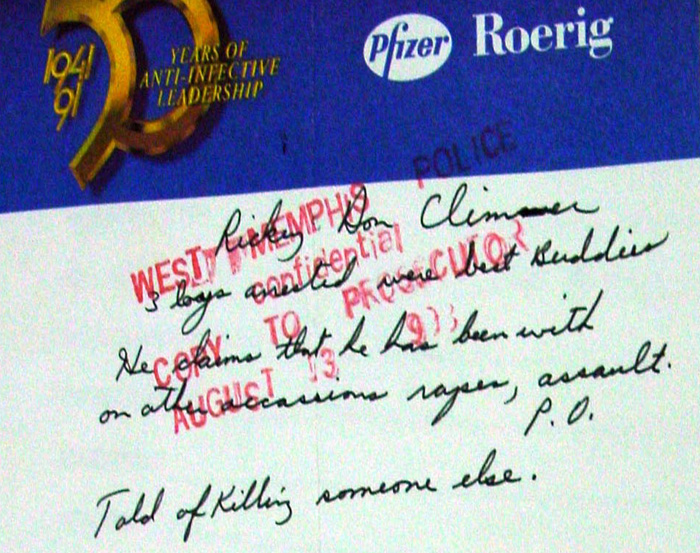 1941
91
50
YEARS OF
ANTI-INFECTIVE
LEADERSHIP
Pfizer Roerig
WEST MEMPHIS POLICE
confidential
COPY TO PROSECUTOR
AUGUST 13 93
Ricky Don Climer
3 boys arrested were best Buddies
He claims that he has been with
on other occassions rapes, assault.
P.O.
Told of Killing someone else.